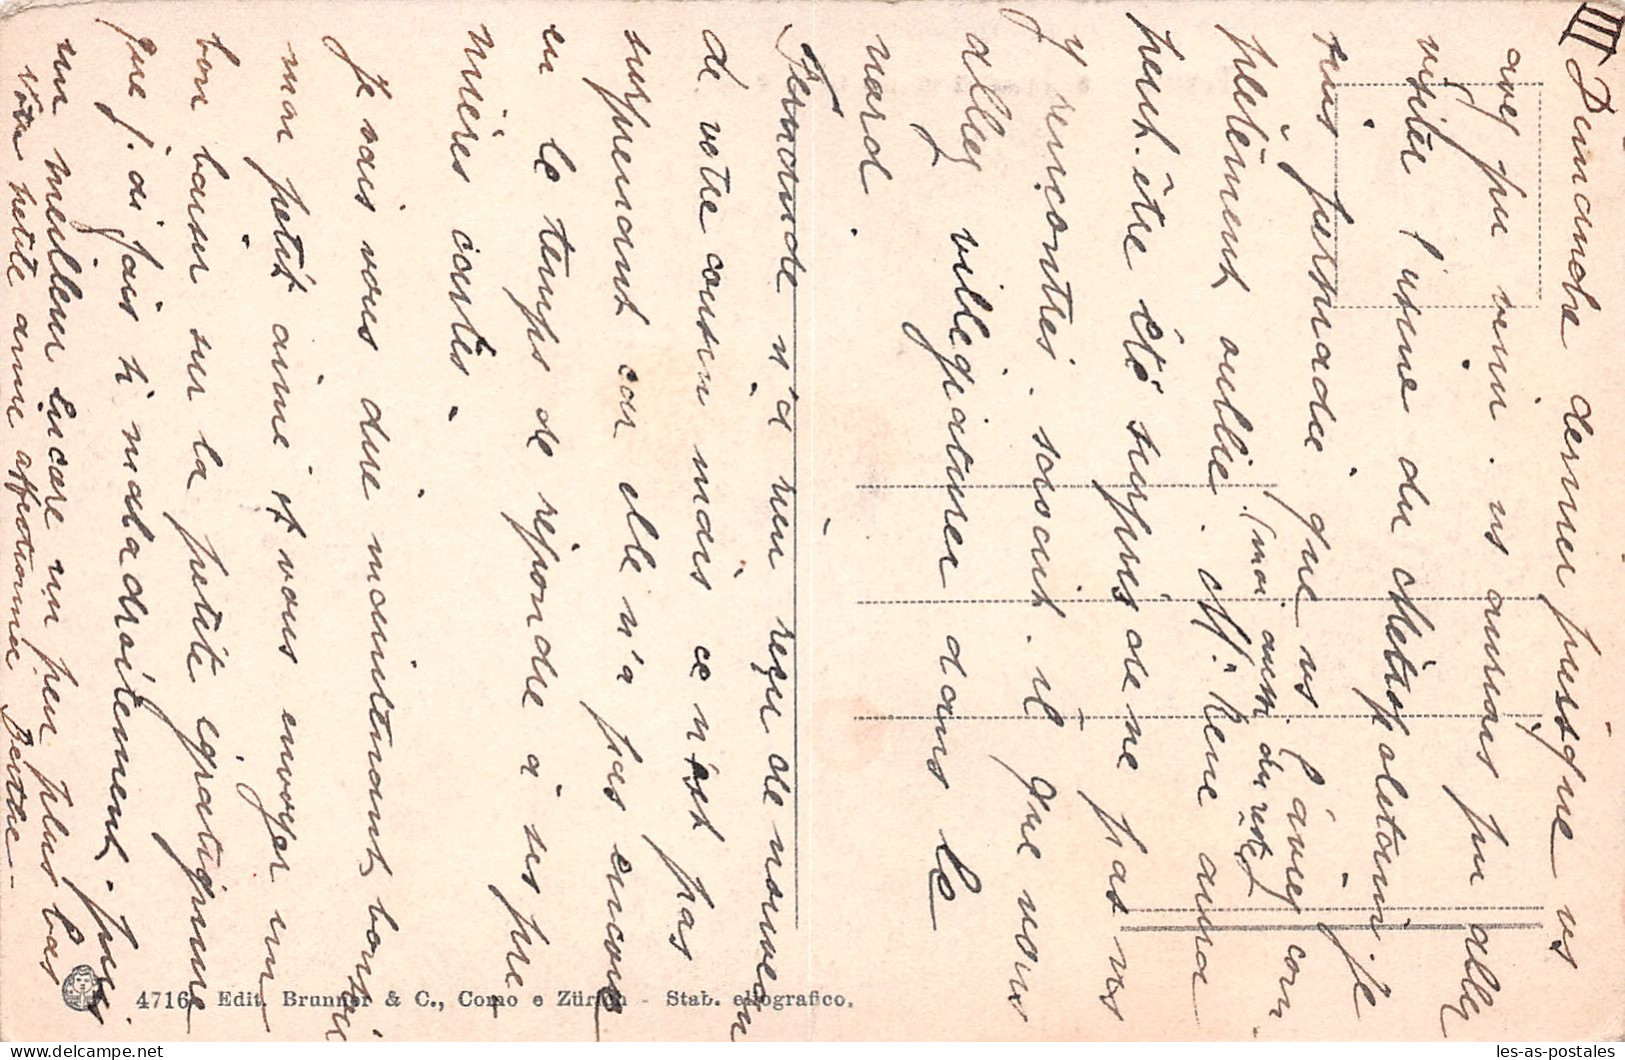 III Dimanche dernier puisque vs
avez pu venir. ns aurions pu aller
visiter l'usine du Métropolitain je
suis persuadée que vs l'aviez com
plètement oublié. (moi aussi du reste)
M. René aura
peut-être été surpris de ne pas ns
y rencontrer. savait-il que vous
alliez villégiaturer dans le
nord.
Fernande n'a rien reçu de nouveau
de votre cousin mais ce n'est pas
surprenant car elle n'a pas encore
eu le temps de répondre à ses pre
mières cartes.
Je vais vous dire maintenant bonsoir
mon petit aimé et vous envoyer un
bon baiser sur la petite égratignure
que j'ai fais si maladroitement. puis
un meilleur encore un peu plus bas
Votre petite amie affectionnée Berthe
4716 Edit. Brunner & C., Como e Zürich - Stab. eliografico.
les-as-postales